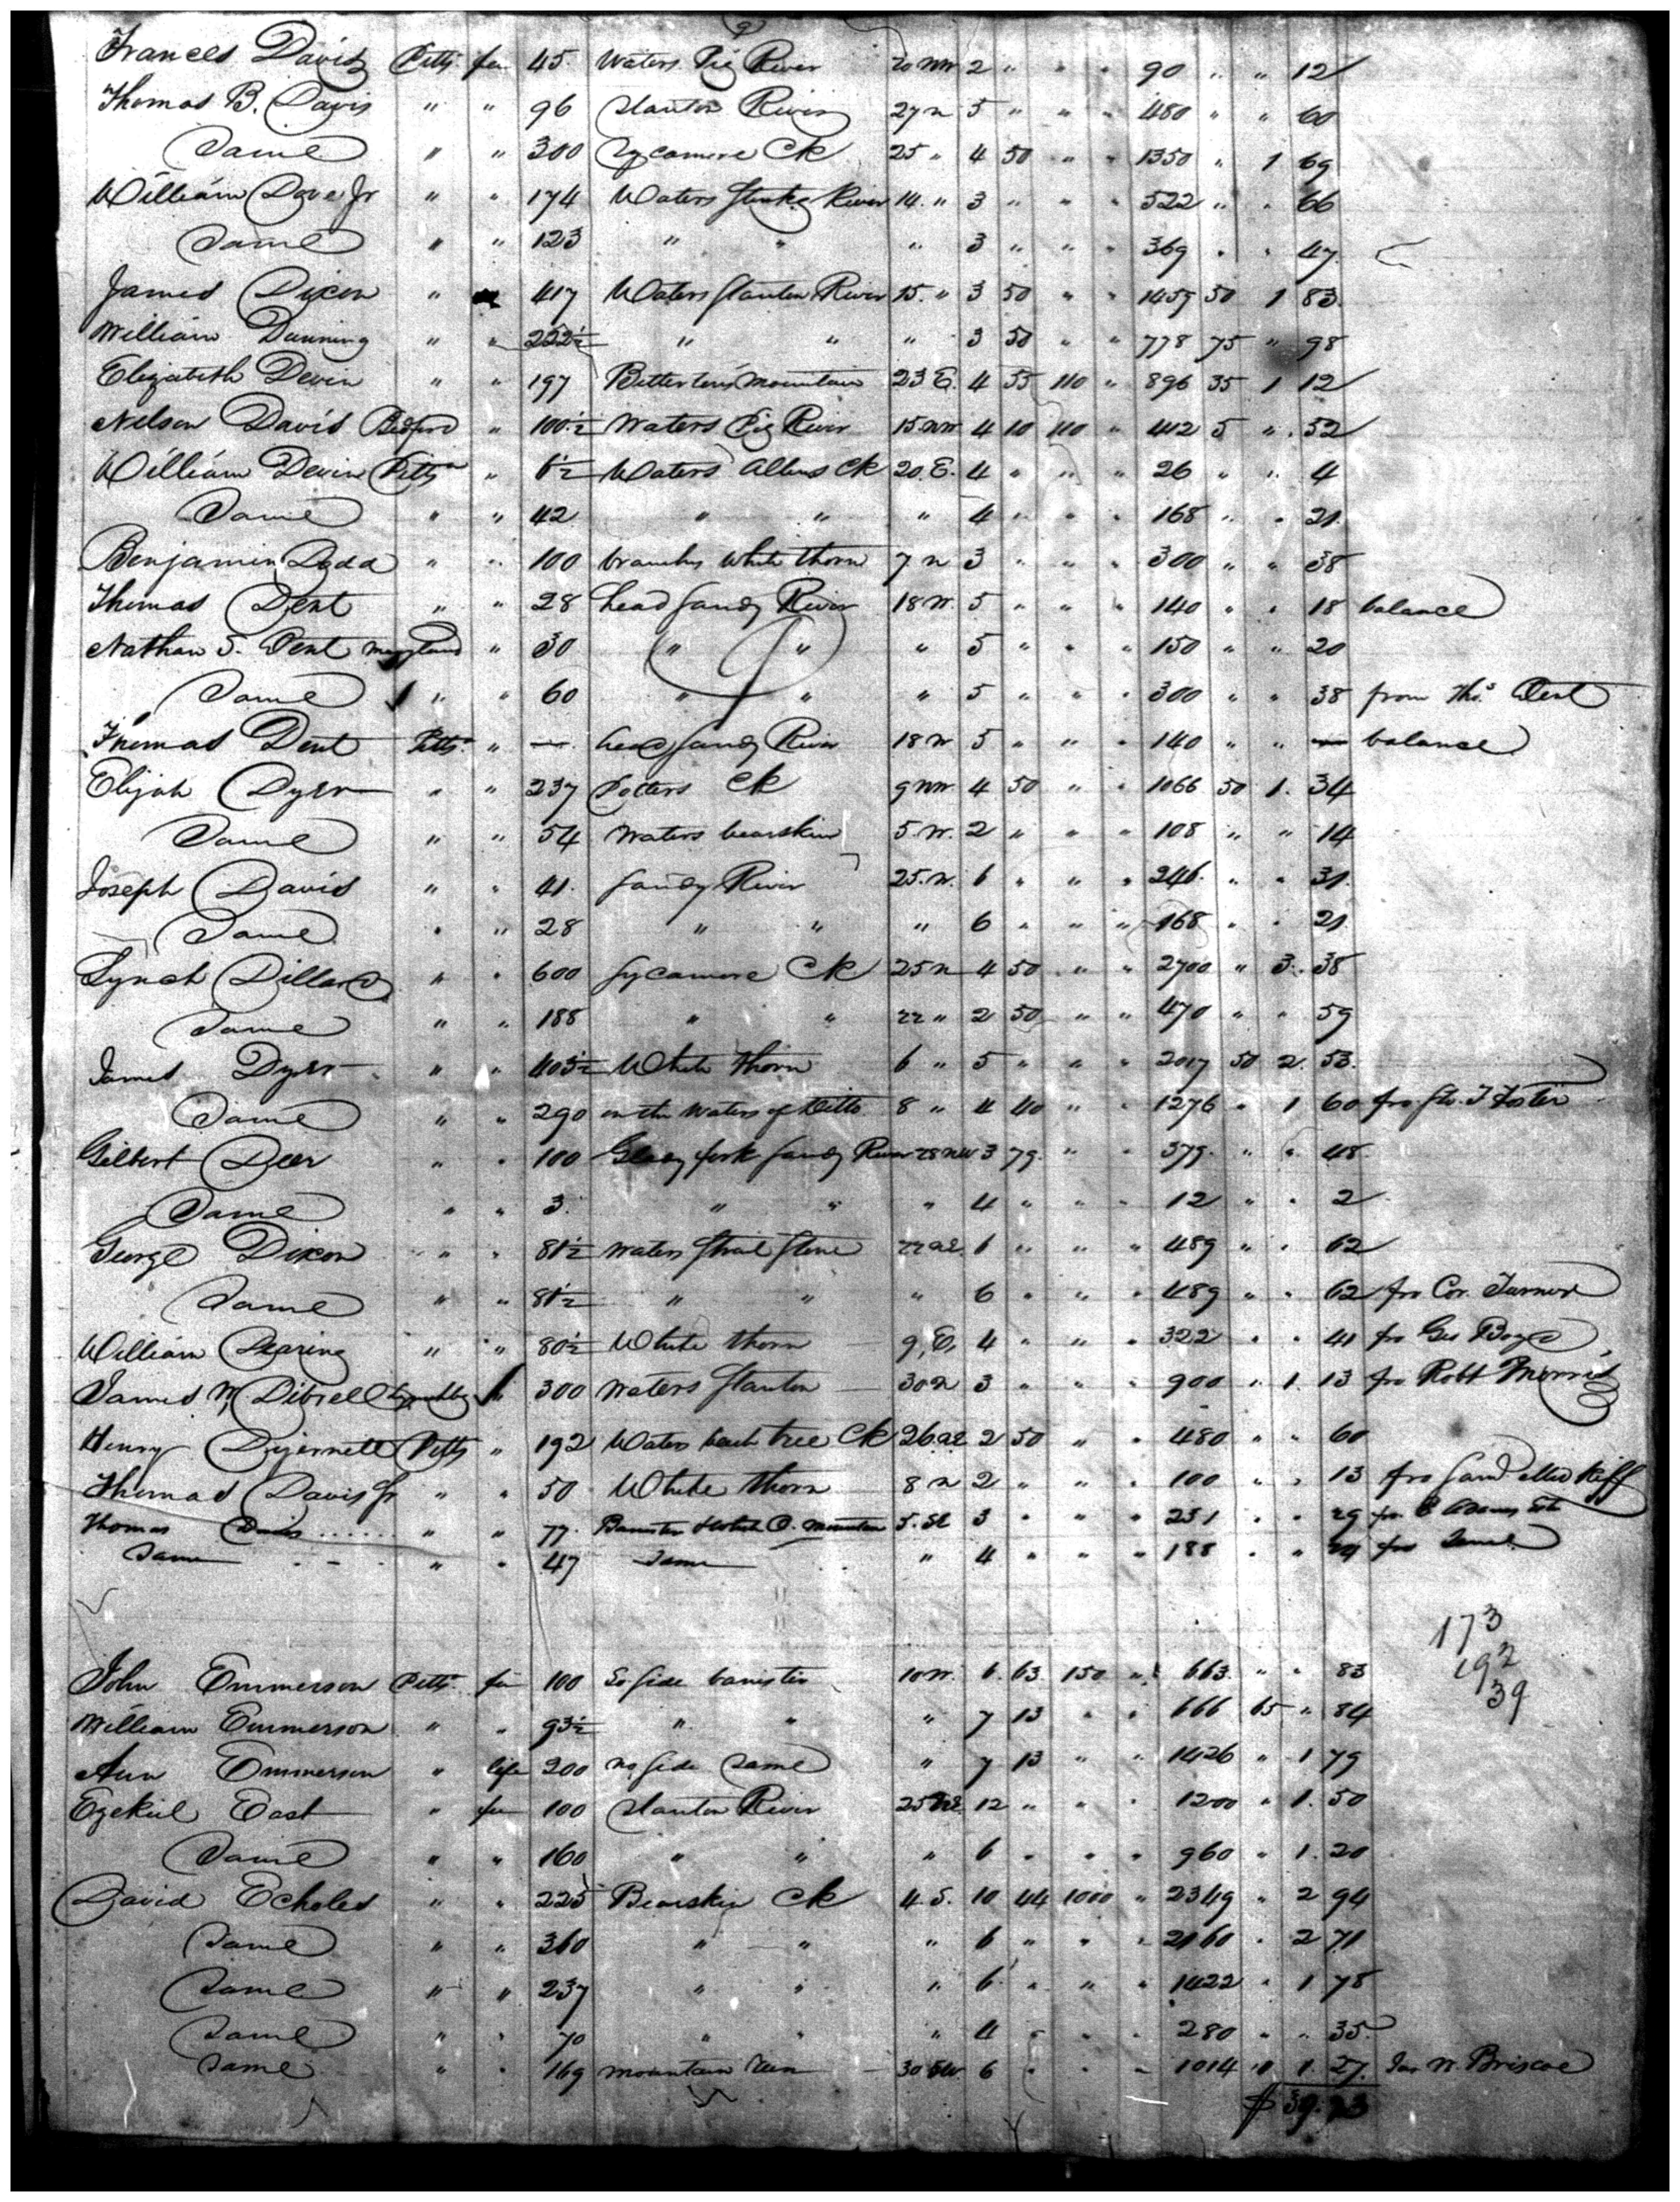 9
Frances Davis Pitts fee 45 Waters Pig River 20 NW 2 " " " 90 " " 12
Thomas B. Davis " " 96 Stanton River 27 N 5 " " " 480 " " 60
Same " " 300 Sycamore Ck 25 " 4 50 " " 1350 " 1 69
William Dove Jr " " 174 Waters River 14 " 3 " " " 522 " " 66
Same " " 123 " " " 3 " " " 369 " " 47
James Dixon " 417 Waters Stanton River 15 " 3 50 " " 1459 50 1 83
William Dunning " " 222½ " " " 3 50 " " 778 75 " 98
Elizabeth Devin " " 197 Mountain 23 E. 4 55 110 " 896 35 1 12
Nelson Davis Bedford " 100½ Waters Pig River 15 NW 4 10 110 " 412 5 " 52
William Devin Pitts " 6½ Waters Allens Ck 20 E. 4 " " " 26 " " 4
Same " " 42 " " " 4 " " " 168 " " 21
Benjamin Dodd " " 100 branches White thorn 7 N 3 " " " 300 " " 38
Thomas Dent " " 28 head Sandy River 18 W. 5 " " " 140 " " 18 balance
Nathan S. Dent Maryland " 30 " " " 5 " " " 150 " " 20
Same " " 60 " " " 5 " " " 300 " " 38 from Thos Dent
Thomas Dent Pitts " — head Sandy River 18 W 5 " " " 140 " " — balance
Elijah Dyer " " 237 Potters Ck 9 NW 4 50 " " 1066 50 1 34
Same " " 54 Waters bearskin 5 W. 2 " " " 108 " " 14
Joseph Davis " " 41 Sandy River 25 W. 6 " " " 246 " " 31
Same " " 28 " " " 6 " " " 168 " " 21
Lynch Dillard " " 600 Sycamore Ck 25 N 4 50 " " 2700 " 3 38
Same " " 188 " " 22 " 2 50 " " 470 " " 59
James Dyer " " 403½ White Thorn 6 " 5 " " " 2017 50 2 53
Same " " 290 on the Waters of Ditto 8 " 4 40 " " 1276 " 1 60 fro Foster
Gilbert Deer " " 100 fork Sandy River 28 NW 3 79 " " 379 " " 48
Same " " 3 " " " 4 " " " 12 " " 2
George Dixon " " 81½ Waters Strait Stone 22 NE 6 " " " 489 " " 62
Same " " 81½ " " " 6 " " " 489 " " 62 fro Cor. Turner
William Dearing " " 80½ White thorn 9 E 4 " " " 322 " " 41 fro Geo Boyd
James M. Dibrell Lynchbg " 300 Waters Stanton 30 N 3 " " " 900 " 1 13 fro Robt Morris
Henry Dejernett Pitts " 192 Waters beach tree Ck 26 NE 2 50 " " 480 " " 60
Thomas Davis Jr " " 50 White thorn 8 N 2 " " " 100 " " 13 fro
Thomas Davis " " 77 Banister Mountain 5 SE 3 " " " 231 " " 29 fro Adams
Same " " 47 Same " 4 " " " 188 " " 24 fro Same
173
192
39
John Emmerson Pitts fee 100 So side banister 10 W. 6 63 150 " 663 " " 83
William Emmerson " " 93½ " " " 7 13 " " 666 65 " 84
Ann Emmerson " life 200 No side Same " 7 13 " " 1426 " 1 79
Ezekiel East " fee 100 Stanton River 25 12 " " " 1200 " 1 50
Same " " 160 " " " 6 " " " 960 " 1 20
David Echoles " " 225 Bearskin Ck 4 S. 10 44 1000 " 2349 " 2 94
Same " " 360 " " " 6 " " " 2160 " 2 71
Same " " 237 " " " 6 " " " 1422 " 1 78
Same " " 70 " " " 4 " " " 280 " " 35
Same " " 169 Mountain run 30 SW 6 " " " 1014 " 1 27 Jas W. Briscoe